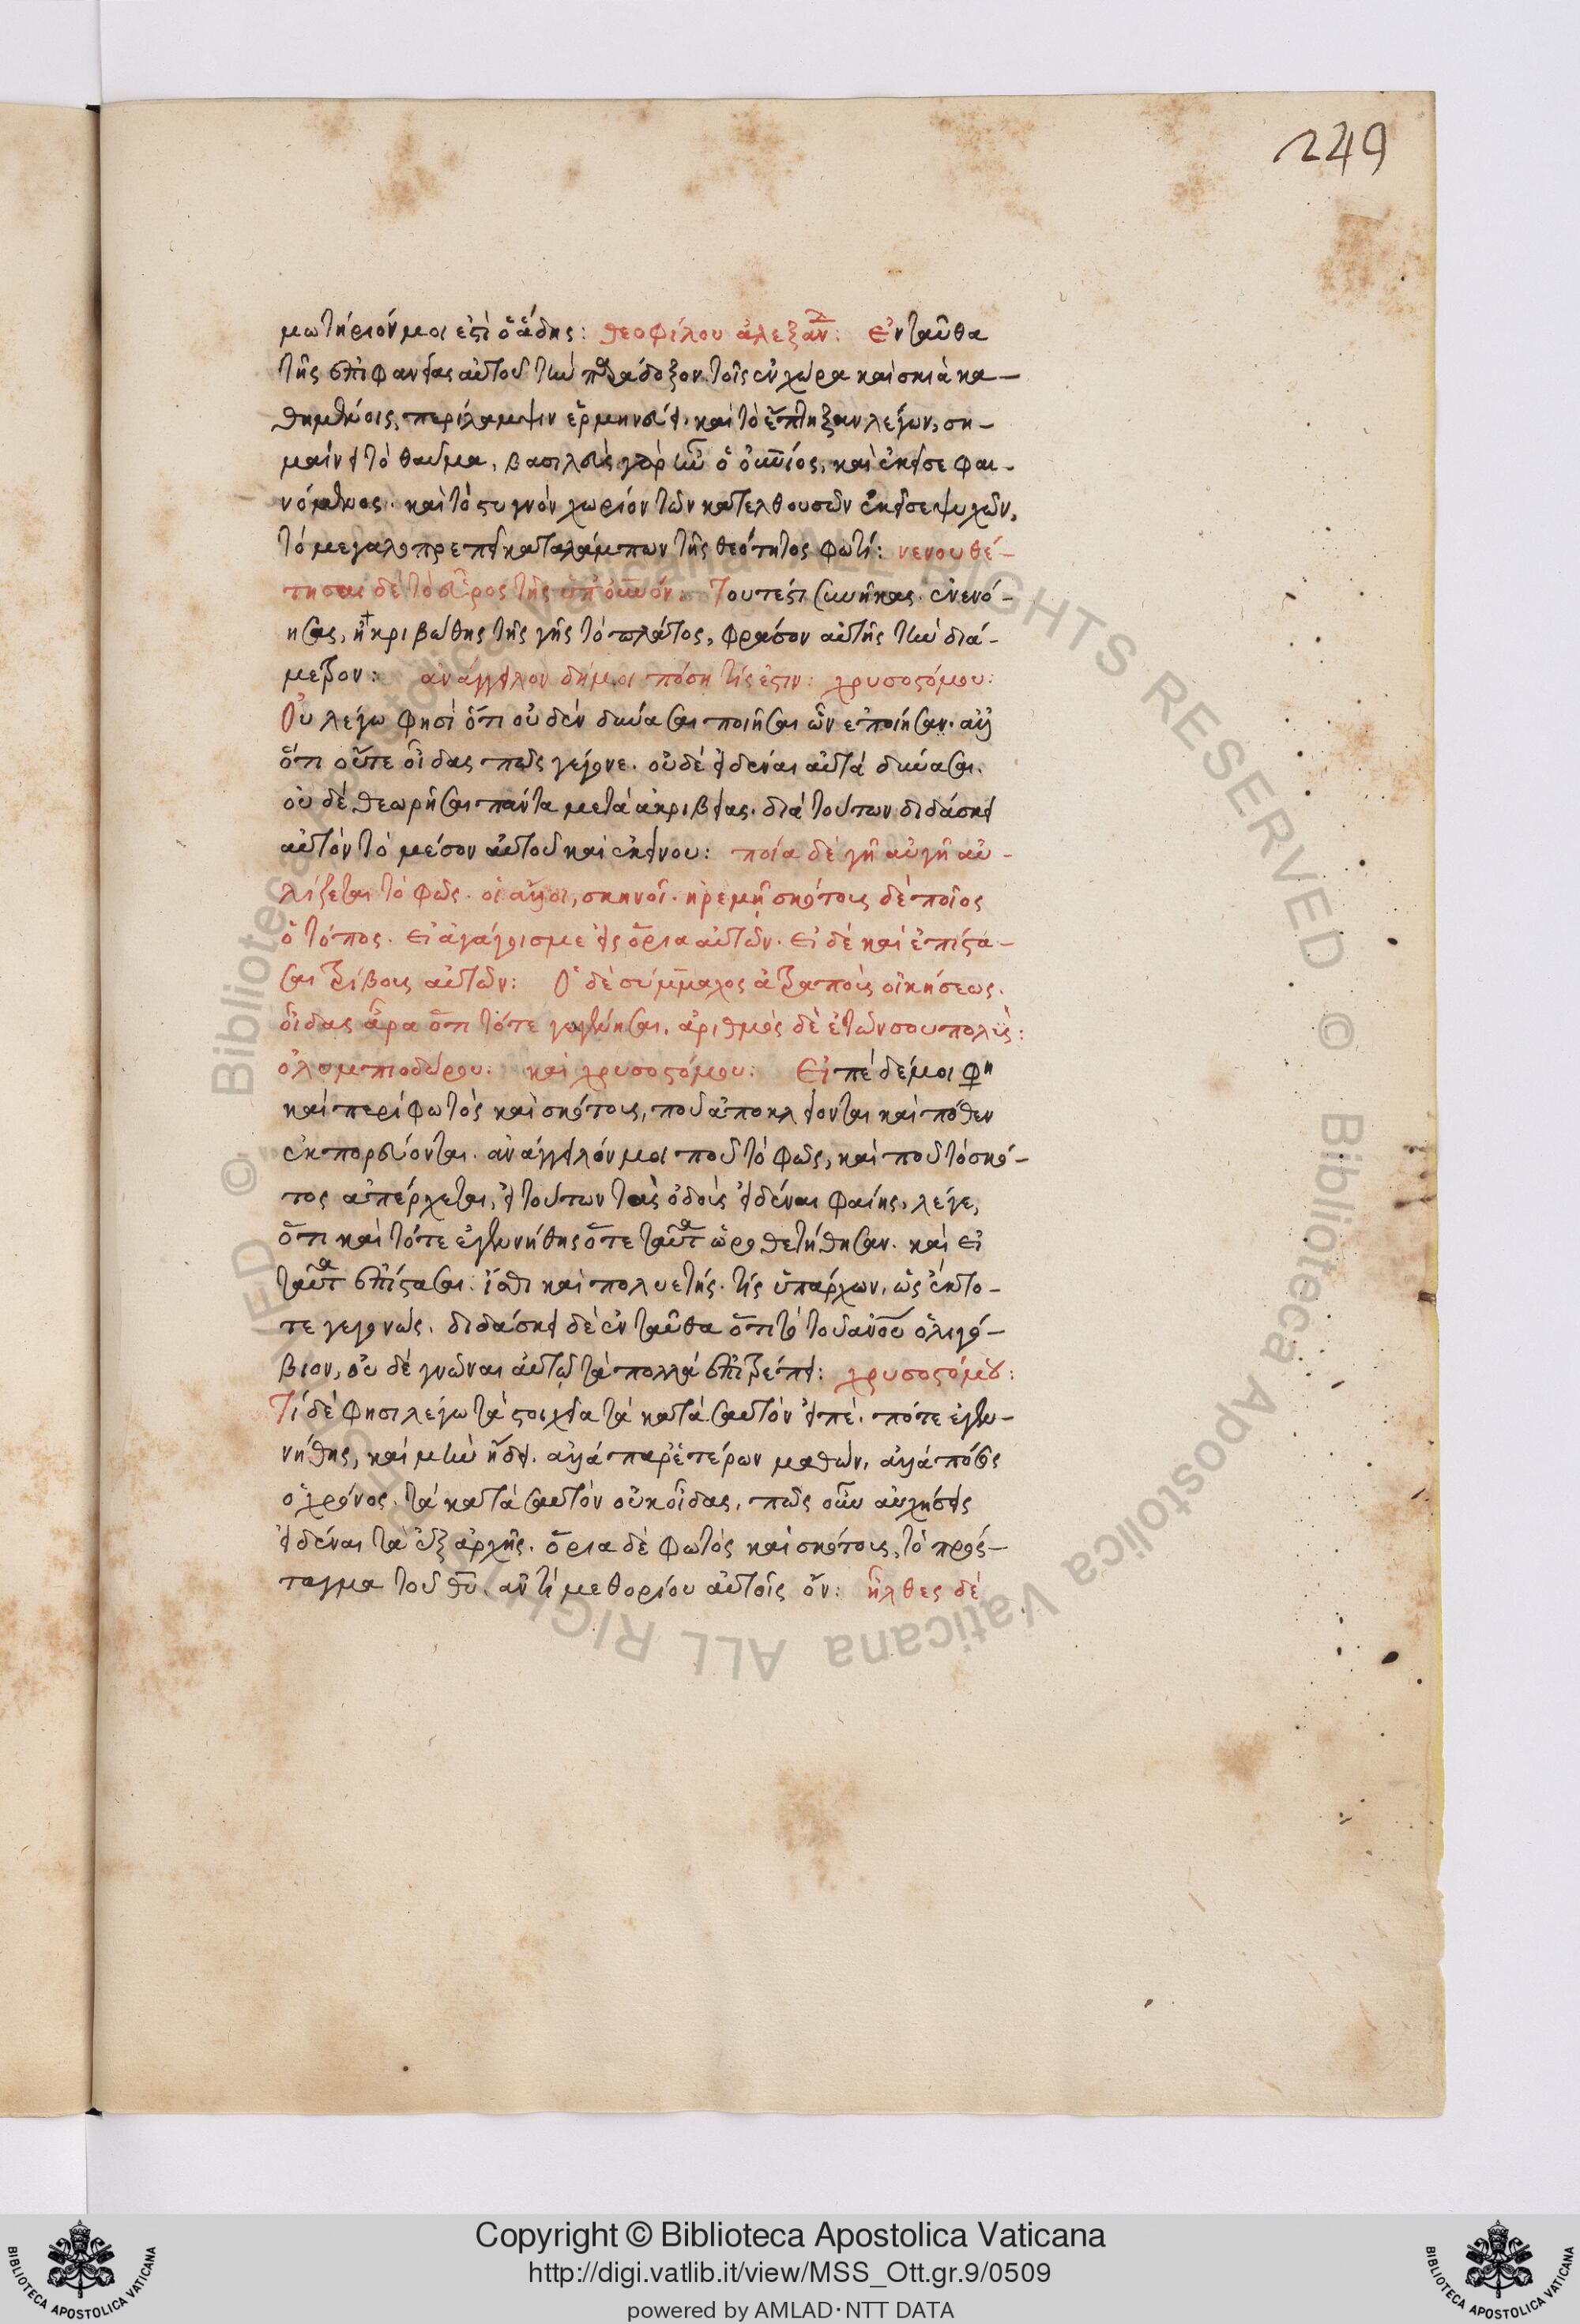 249
μωτήριόν μοι ἐστὶ ὁ ἅδης: θεοφίλου ἀλεξαν: ἐνταῦθα
τῆς ἐπιφανείας αὐτοῦ τὴν παράδοξον τοῖς ἐν χώρα καὶ σκιὰ κα-
θημένοις, περίλαμψιν ἑρμηνεύει. καὶ τὸ ἔπτηξαν λέγων, ση-
μαίνει τὸ θαῦμα, βασιλεὺς γὰρ ἦν ὁ οὐνίος, καὶ ἐκεῖσε φαι-
νόμενος. καὶ τὸ στυγνὸν χωρίον τῶν κατελθουσῶν ἐκεῖσε ψυχῶν,
τὸ μεγαλοπρεπεῖ καταλάμπων τῆς θεότητος φωτί: νενουθέ-
τησαι δὲ τὸ εὖρος τῆς ὑπ' οὐνόν: Τουτέστι συνῆκας. ἐνενό-
ησας, ἢ ἠκριβώθης τῆς γῆς τὸ πλάτος, φράσον αὐτῆς τὴν διά-
μετρον: ἀνάγγειλον δή μοι πόση τίς ἐστιν: χρυσοστόμου:
Οὐ λέγω φησὶ ὅτι οὐδὲν δύνασαι ποιῆσαι ὧν ἐποίησαν. ἀλλ
ὅτι οὔτε οἶδας πῶς γέγονε. οὐδὲ εἰδέναι αὐτὰ δύνασαι.
οὐδὲ θεωρῆσαι πάντα μετὰ ἀκριβείας. διὰ τούτων διδάσκει
αὐτὸν τὸ μέσον αὐτοῦ καὶ ἐκείνου: ποία δὲ γῆ αὐγῆ αὐ-
λίζεται τὸ φῶς. οἱ ἄλλοι, σκηνοῖ. ἠρεμῆ σκότους δὲ ποῖος
ὁ τόπος. εἰ ἀγάγοις με εἰς ὅρια αὐτῶν. εἰ δὲ καὶ ἐπίστα-
σαι τρίβους αὐτῶν: Ὁ δὲ σύμμαχος ἀτραποὺς οἰκήσεως.
οἶδας ἄρα ὅτι τότε γεγέννησαι. ἀριθμὸς δὲ ἐτῶν σου πολὺς:
ὀλυμπιοδώρου: καὶ χρυσοστόμου: Εἰπὲ δέ μοι φη
καὶ περὶ φωτὸς καὶ σκότους, ποῦ ἀποκλείονται καὶ πόθεν
ἐκπορεύονται. ἀνάγγειλόν μοι ποῦ τὸ φῶς, καὶ ποῦ τὸ σκό-
τος ἀπέρχεται, εἰ τούτων τὰς ὁδοὺς εἰδέναι φαίης, λέγε,
ὅτι καὶ τότε ἐγεννήθης ὅτε ταῦτα ὡροθετήθησαν. καὶ εἰ
ταῦτα ἐπίστασαι. ἴσθι καὶ πολυετής. τίς ὑπάρχων, ὡς ἔκτο-
τε γεγονώς. διδάσκει δὲ ἐνταῦθα ὅτι τὸ τοῦ ἀνου ὀλιγό-
βιον, οὐδὲ γνῶναι αὐτῷ τὰ πολλὰ ἐπιτρέπει: χρυσοστόμου:
Τί δὲ φησι λέγω τὰ στοιχεῖα τὰ κατὰ σαυτὸν εἰπὲ. πότε ἐγεν-
νήθης, καὶ μὴν ᾔδει. ἀλλὰ παρ' ἑτέρων μαθών, ἀλλὰ πόσος
ὁ χρόνος. τὰ κατὰ σαυτὸν οὐκ οἶδας, πῶς οὖν αὐχήσεις
εἰδέναι τὰ ἐξ ἀρχῆς. ὅρια δὲ φωτὸς καὶ σκότους, τὸ πρόσ-
ταγμα τοῦ θυ, ἀντὶ μεθορίου αὐτοῖς ὄν: ἦλθες δὲ
Copyright © Biblioteca Apostolica Vaticana
http://digi.vatlib.it/view/MSS_Ott.gr.9/0509
powered by AMLAD·NTT DATA
BIBLIOTECA APOSTOLICA VATICANA
BIBLIOTECA APOSTOLICA VATICANA
© Biblioteca Apostolica Vaticana ALL RIGHTS RESERVED © Biblioteca Apostolica Vaticana ALL RIGHTS RESERVED